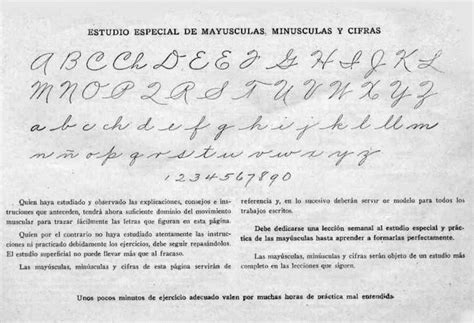 ESTUDIO ESPECIAL DE MAYUSCULAS, MINUSCULAS Y CIFRAS
A B C Ch D E E F G H I J K L
M N O P Q R S T U V W X Y Z
a b c ch d e f g h i j k l ll m
n ñ o p q r s t u v w x y z
1 2 3 4 5 6 7 8 9 0
Quien haya estudiado y observado las explicaciones, consejos e ins-
trucciones que anteceden, tendrá ahora suficiente dominio del movimiento
muscular para trazar fácilmente las letras que figuran en esta página.
Quien por el contrario no haya estudiado atentamente las instruccio-
nes ni practicado debidamente los ejercicios, debe seguir repasándolos.
El estudio superficial no puede llevar más que al fracaso.
Las mayúsculas, minúsculas y cifras de esta página servirán de
referencia y, en lo sucesivo deberán servir de modelo para todos los
trabajos escritos.
Debe dedicarse una lección semanal al estudio especial y prác-
tica de las mayúsculas hasta aprender a formarlas perfectamente.
Las mayúsculas, minúsculas y cifras serán objeto de un estudio más
completo en las lecciones que siguen.
Unos pocos minutos de ejercicio adecuado valen por muchas horas de práctica mal entendida.